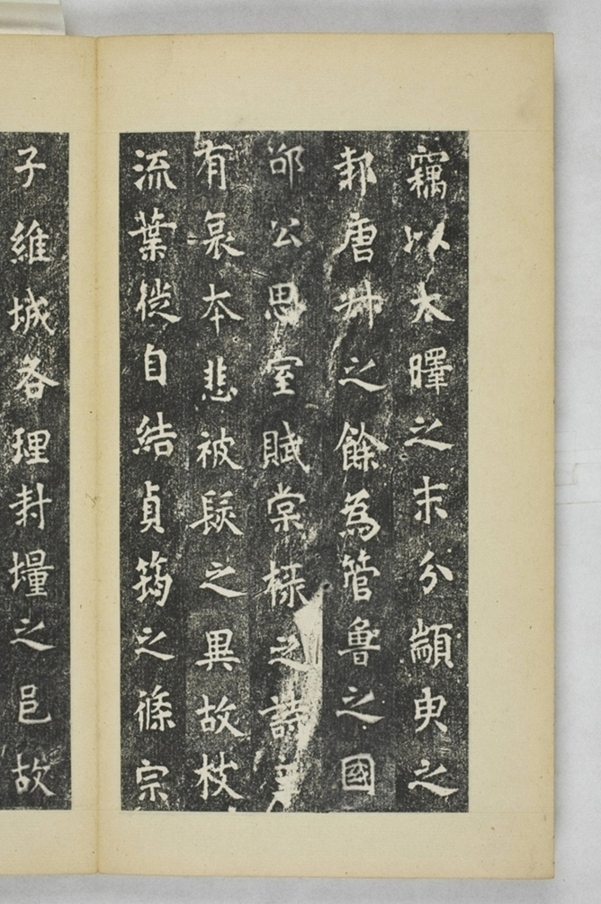 竊以太曎之末分顓臾之
邦唐之餘為管魯之國
邵公思室賦棠棣之詩
有哀本悲被髮之異故枝
流葉從自結貞筠之條宗
子維城各理封壃之邑故